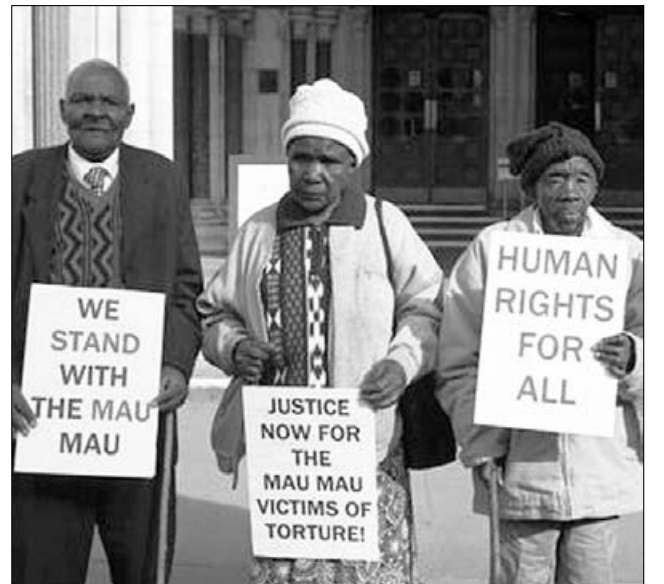 WE
STAND
WITH
THE MAU
MAU
JUSTICE
NOW FOR
THE
MAU MAU
VICTIMS OF
TORTURE!
HUMAN
RIGHTS
FOR
ALL